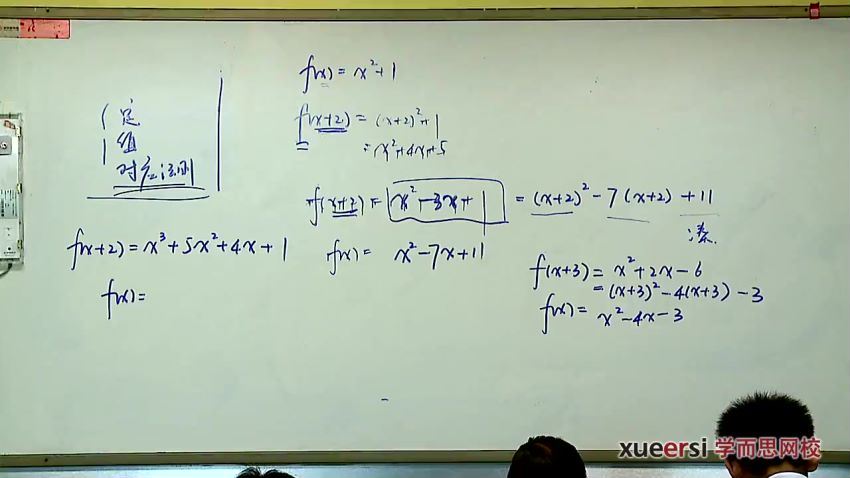 f(x) = x²+1
定
值
对应法则
f(x+2) = (x+2)²+1
= x²+4x+5
f(x+2) = x²-3x+1 = (x+2)²-7(x+2)+11
凑
f(x) = x²-7x+11
f(x+2) = x³+5x²+4x+1
f(x) =
f(x+3) = x²+2x-6
= (x+3)²-4(x+3)-3
f(x) = x²-4x-3
xueersi 学而思网校